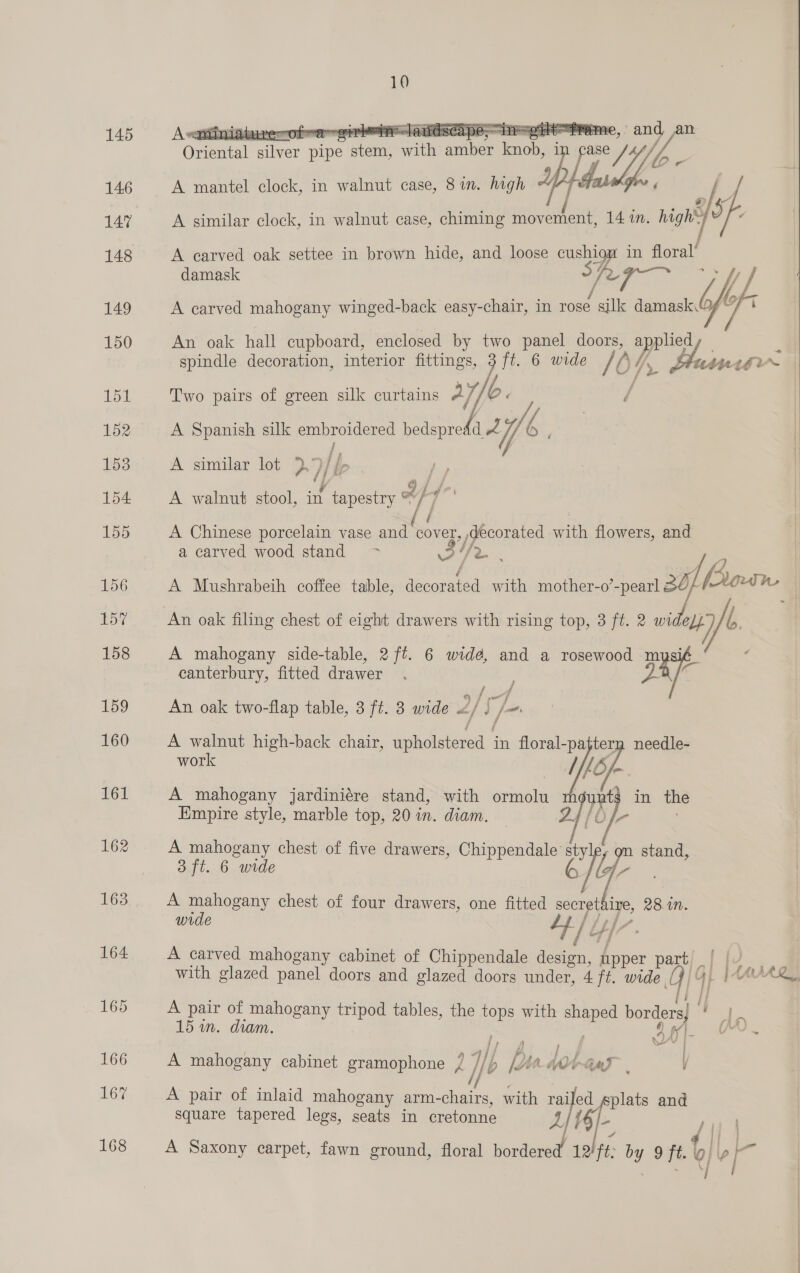 10
145 A miniature of a girl in landscape, in gilt frame, and an
Oriental silver pipe stem, with amber knob, in case
146 A mantel clock, in walnut case, 8 in. high
147 A similar clock, in walnut case, chiming movement, 14 in. high
148 A carved oak settee in brown hide, and loose cushion in floral
damask
149 A carved mahogany winged-back easy-chair, in rosé silk damask
150 An oak hall cupboard, enclosed by two panel doors, applied
spindle decoration, interior fittings, 3 ft. 6 wide
151 Two pairs of green silk curtains 27/6
152 A Spanish silk embroidered bedspread 27/6
153 A similar lot 27/6
154 A walnut stool, in tapestry
155 A Chinese porcelain vase and cover, decorated with flowers, and
a carved wood stand
156 A Mushrabeih coffee table, decorated with mother-o'-pearl 30/- Brown
157 An oak filing chest of eight drawers with rising top, 3 ft. 2 wide
158 A mahogany side-table, 2 ft. 6 wide, and a rosewood music
canterbury, fitted drawer .
159 An oak two-flap table, 3 ft. 3 wide 2/5/-
160 A walnut high-back chair, upholstered in floral-pattern needle-
work
161 A mahogany jardiniére stand, with ormolu mounts in the
Empire style, marble top, 20 in. diam. 2/10/-
162 A mahogany chest of five drawers, Chippendale style, on stand,
3 ft. 6 wide
163 A mahogany chest of four drawers, one fitted secretaire, 28 in.
wide 4/4/-
164 A carved mahogany cabinet of Chippendale design, upper part
with glazed panel doors and glazed doors under, 4 ft. wide
165 A pair of mahogany tripod tables, the tops with shaped borders,
15 in. diam.
166 A mahogany cabinet gramophone
167 A pair of inlaid mahogany arm-chairs, with railed splats and
square tapered legs, seats in cretonne
168 A Saxony carpet, fawn ground, floral bordered 12 ft. by 9 ft.